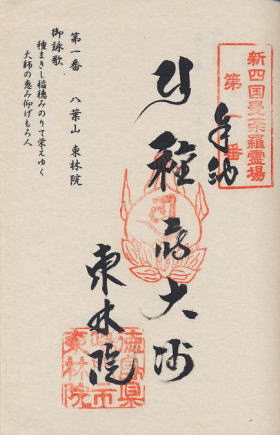 新四国曼荼羅霊場
第一番
奉納
種蒔大師
東林院
徳島県
鳴門市
東林院
第一番 八葉山 東林院
御詠歌
種まきし稲穂みのりて栄えゆく
大師の恵み仰げもろ人